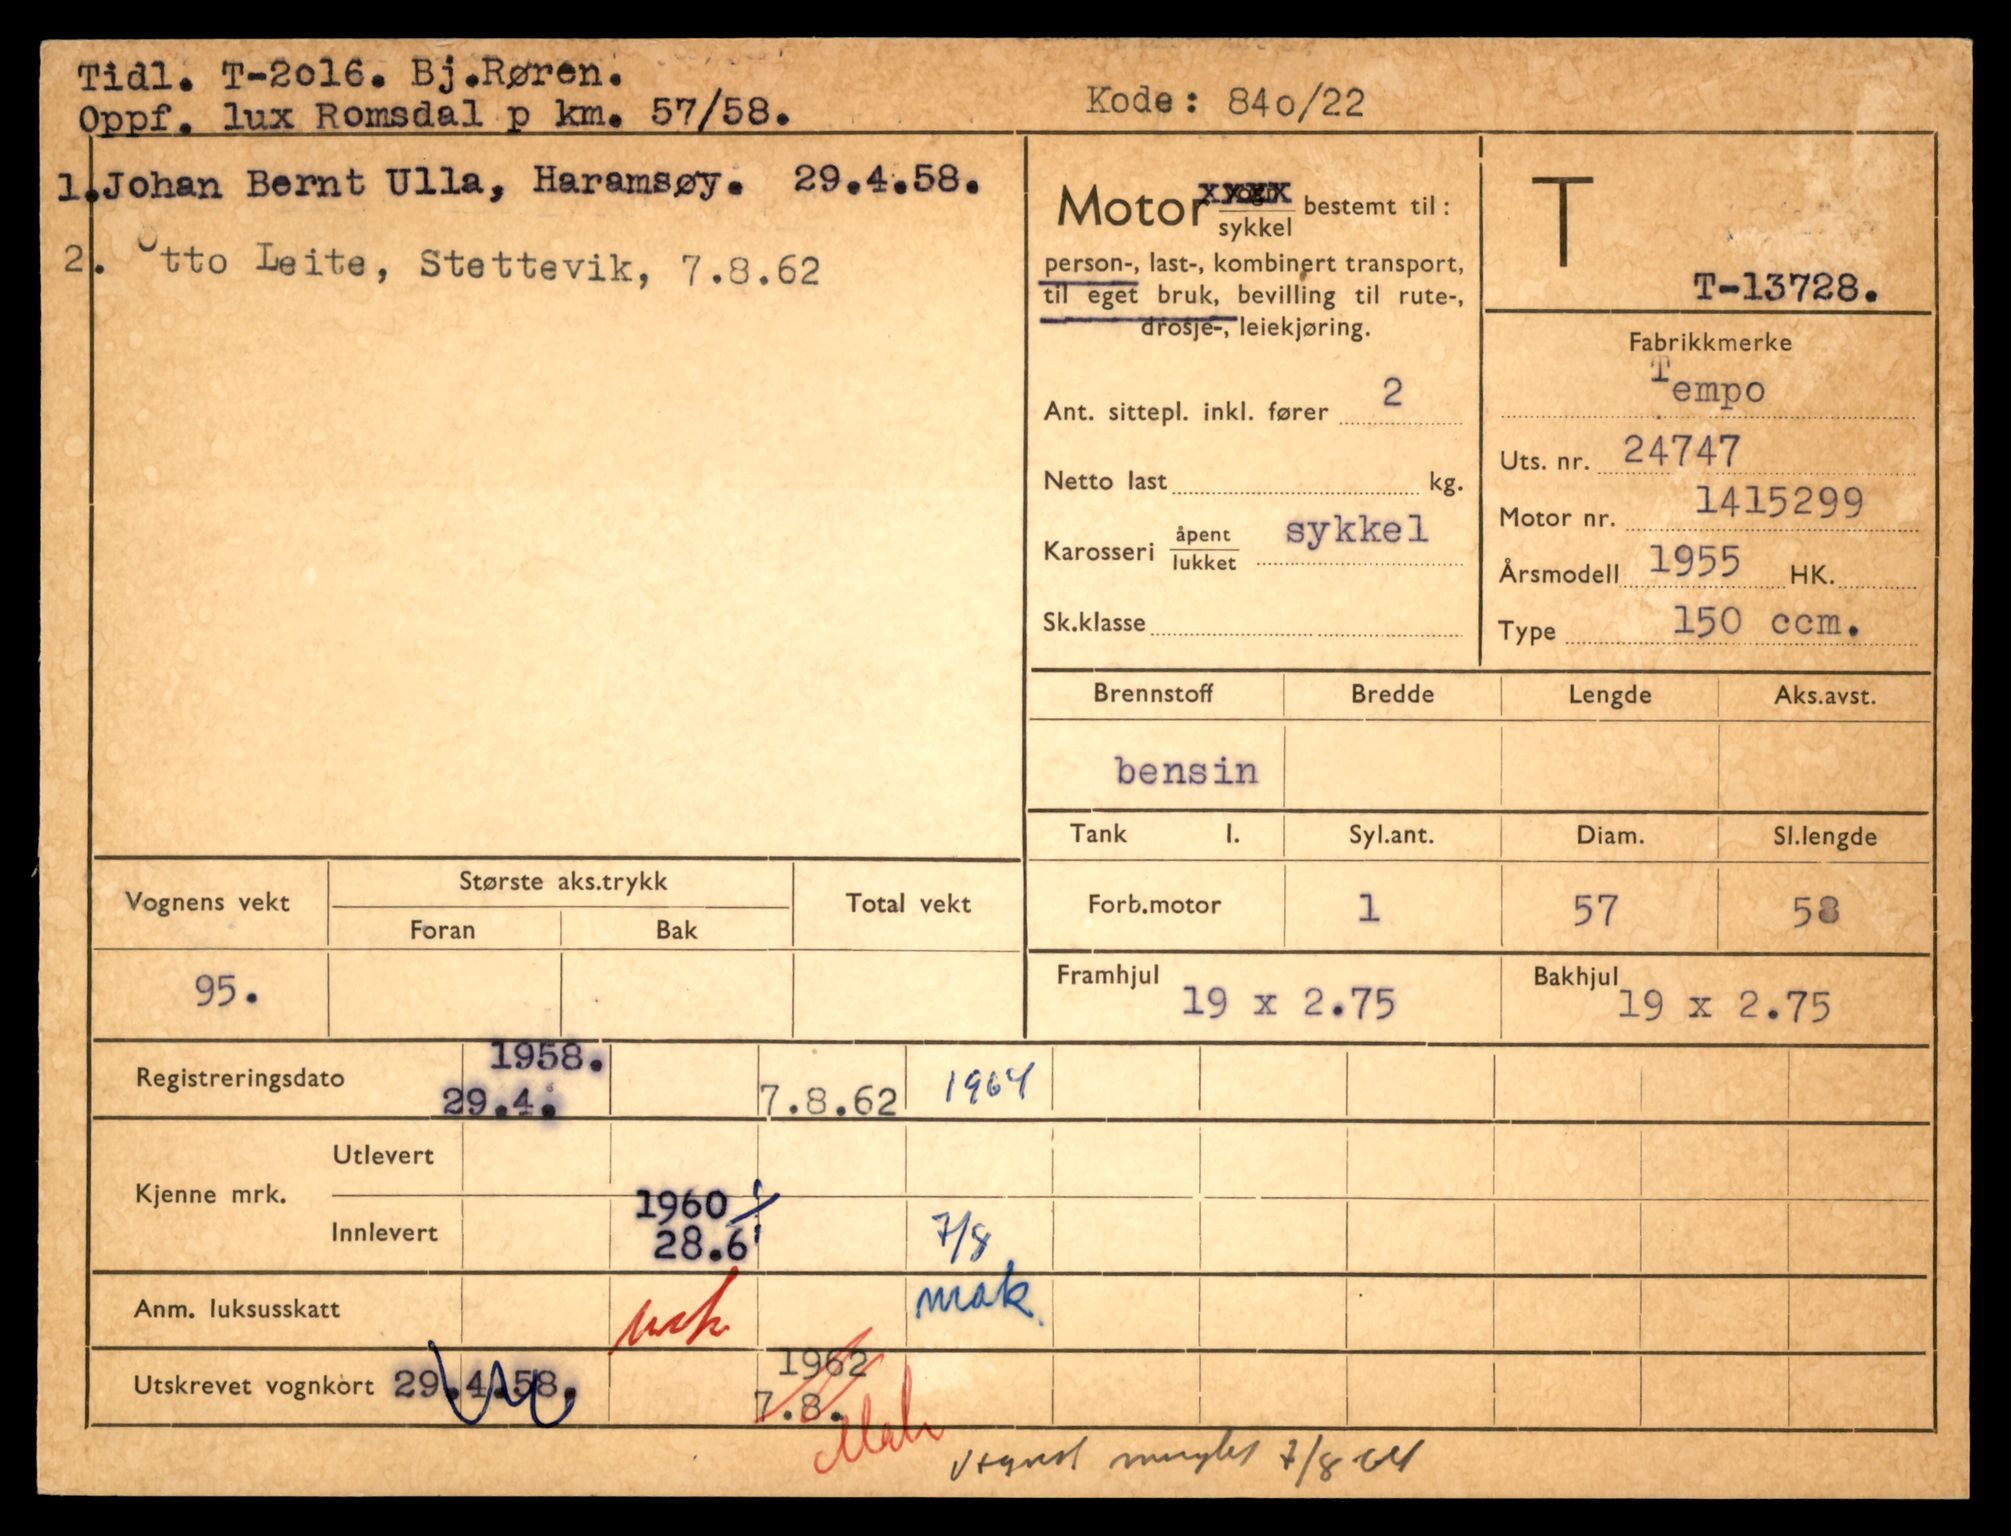 Tidl. T-2o16. Bj.Røren.
Oppf. lux Romsdal p km. 57/58.
Kode: 84o/22
1.Johan Bernt Ulla, Haramsøy. 29.4.58.
2. Otto Leite, Stettevik, 7.8.62
Motor xxxx bestemt til:
sykkel
person-, last-, kombinert transport,
til eget bruk, bevilling til rute-,
drosje-, leiekjøring.
Ant. sittepl. inkl. fører 2
Netto last kg.
Karosseri åpent
lukket sykkel
Sk.klasse
T
T-13728.
Fabrikkmerke
Tempo
Uts. nr. 24747
Motor nr. 1415299
Årsmodell 1955 HK.
Type 150 ccm.
Brennstoff Bredde Lengde Aks.avst.
bensin
Tank l. Syl.ant. Diam. Sl.lengde
Forb.motor 1 57 58
Framhjul 19 x 2.75 Bakhjul 19 x 2.75
Vognens vekt Største aks.trykk Total vekt
Foran Bak
95.
1958.
Registreringsdato 29.4. 7.8.62 1964
Utlevert
Kjenne mrk.
1960
Innlevert 28.6 7/8
Anm. luksusskatt mak
1962
Utskrevet vognkort 29.4.58. 7.8.
7/8 64